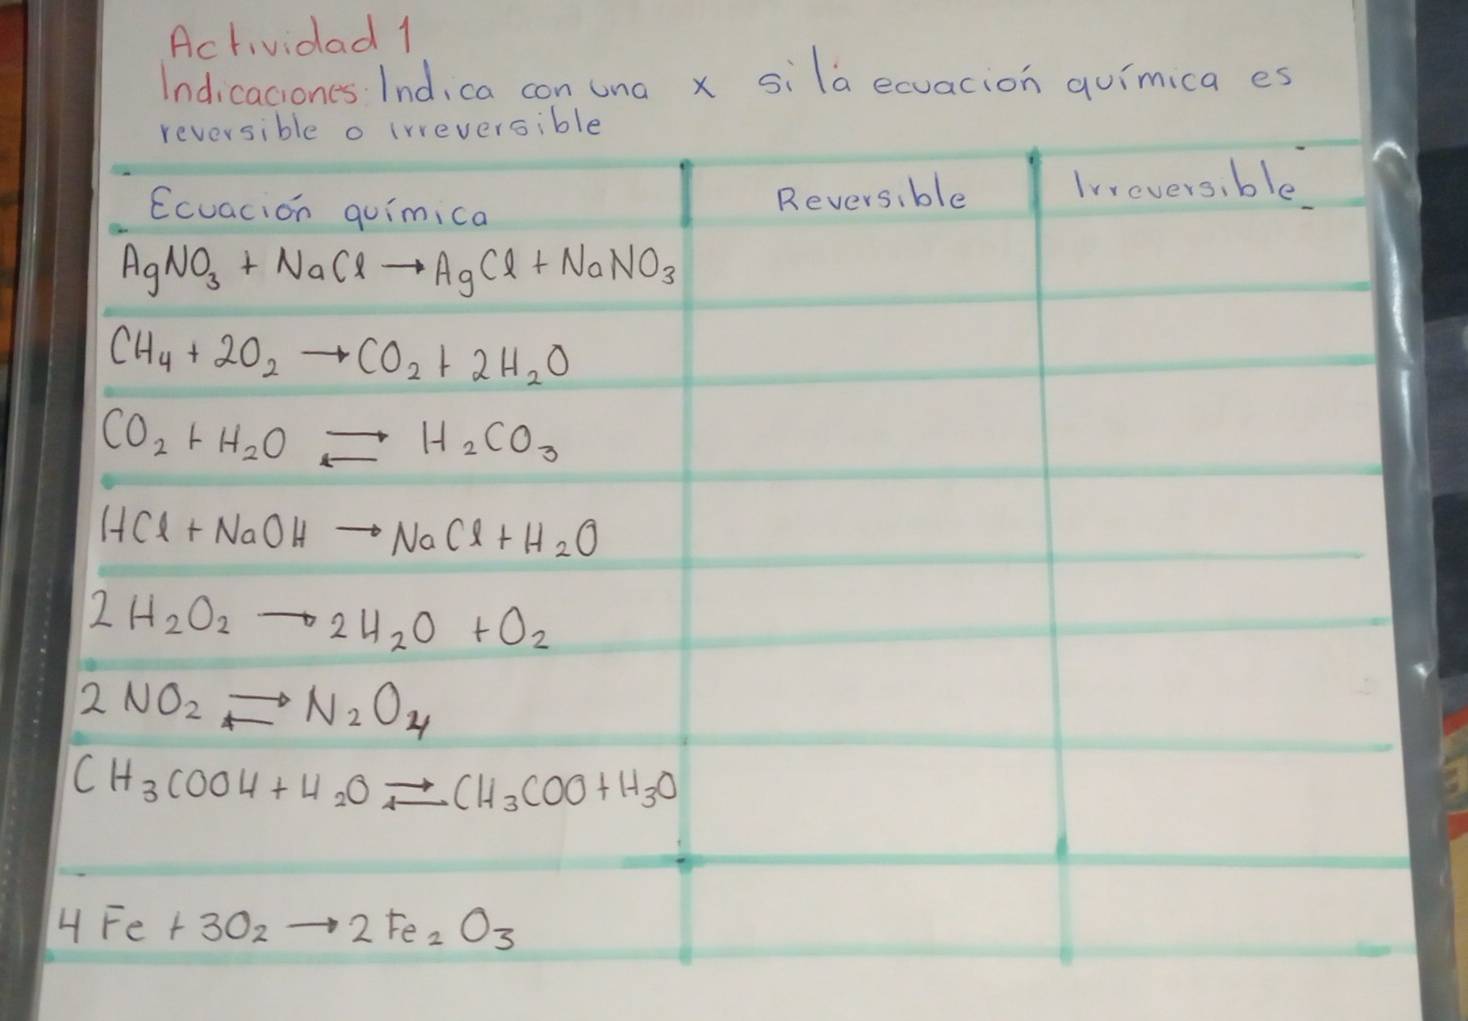 Actividad 1
Indicaciones: Indica con una x si la ecuación química es
reversible o irreversible
Ecuación química Reversible Irreversible
AgNO₃ + NaCl → AgCl + NaNO₃
CH₄ + 2O₂ → CO₂ + 2H₂O
CO₂ + H₂O ⇌ H₂CO₃
HCl + NaOH → NaCl + H₂O
2H₂O₂ → 2H₂O + O₂
2NO₂ ⇌ N₂O₄
CH₃COOH + H₂O ⇌ CH₃COO + H₃O
4Fe + 3O₂ → 2Fe₂O₃